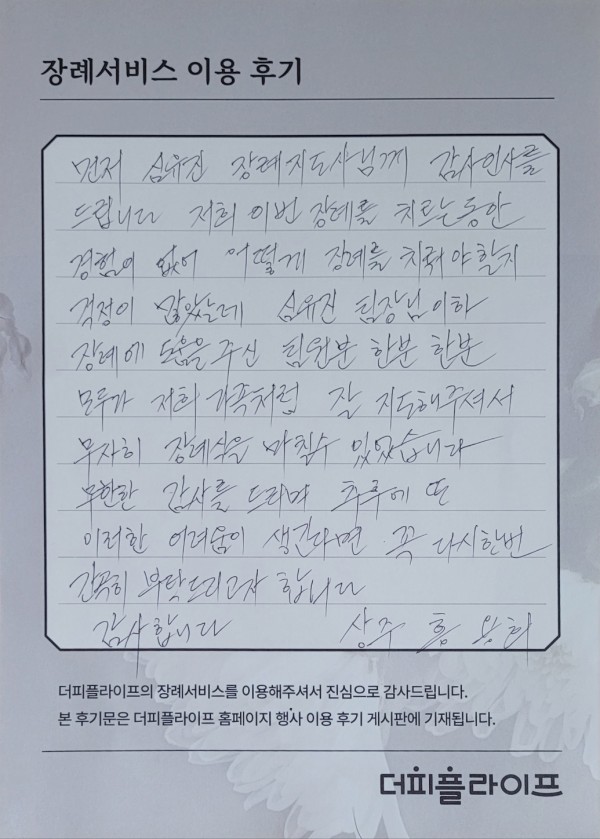 장례서비스 이용 후기
먼저 심유진 장례지도사님께 감사인사를
드립니다 저희 이번 장례를 치르는동안
경험이 없어 어떻게 장례를 치뤄야할지
걱정이 많았는데 심유진 팀장님이하
장례에 도움을 주신 팀원분 한분 한분
모두가 저희 가족처럼 잘 지도해주셔서
무사히 장례식을 마칠수 있었습니다
무한한 감사를 드리며 추후에 또
이러한 어려움이 생긴다면 꼭 다시한번
간곡히 부탁드리고자 합니다
감사합니다 상주 홍
더피플라이프의 장례서비스를 이용해주셔서 진심으로 감사드립니다.
본 후기문은 더피플라이프 홈페이지 행사 이용 후기 게시판에 기재됩니다.
더피플라이프